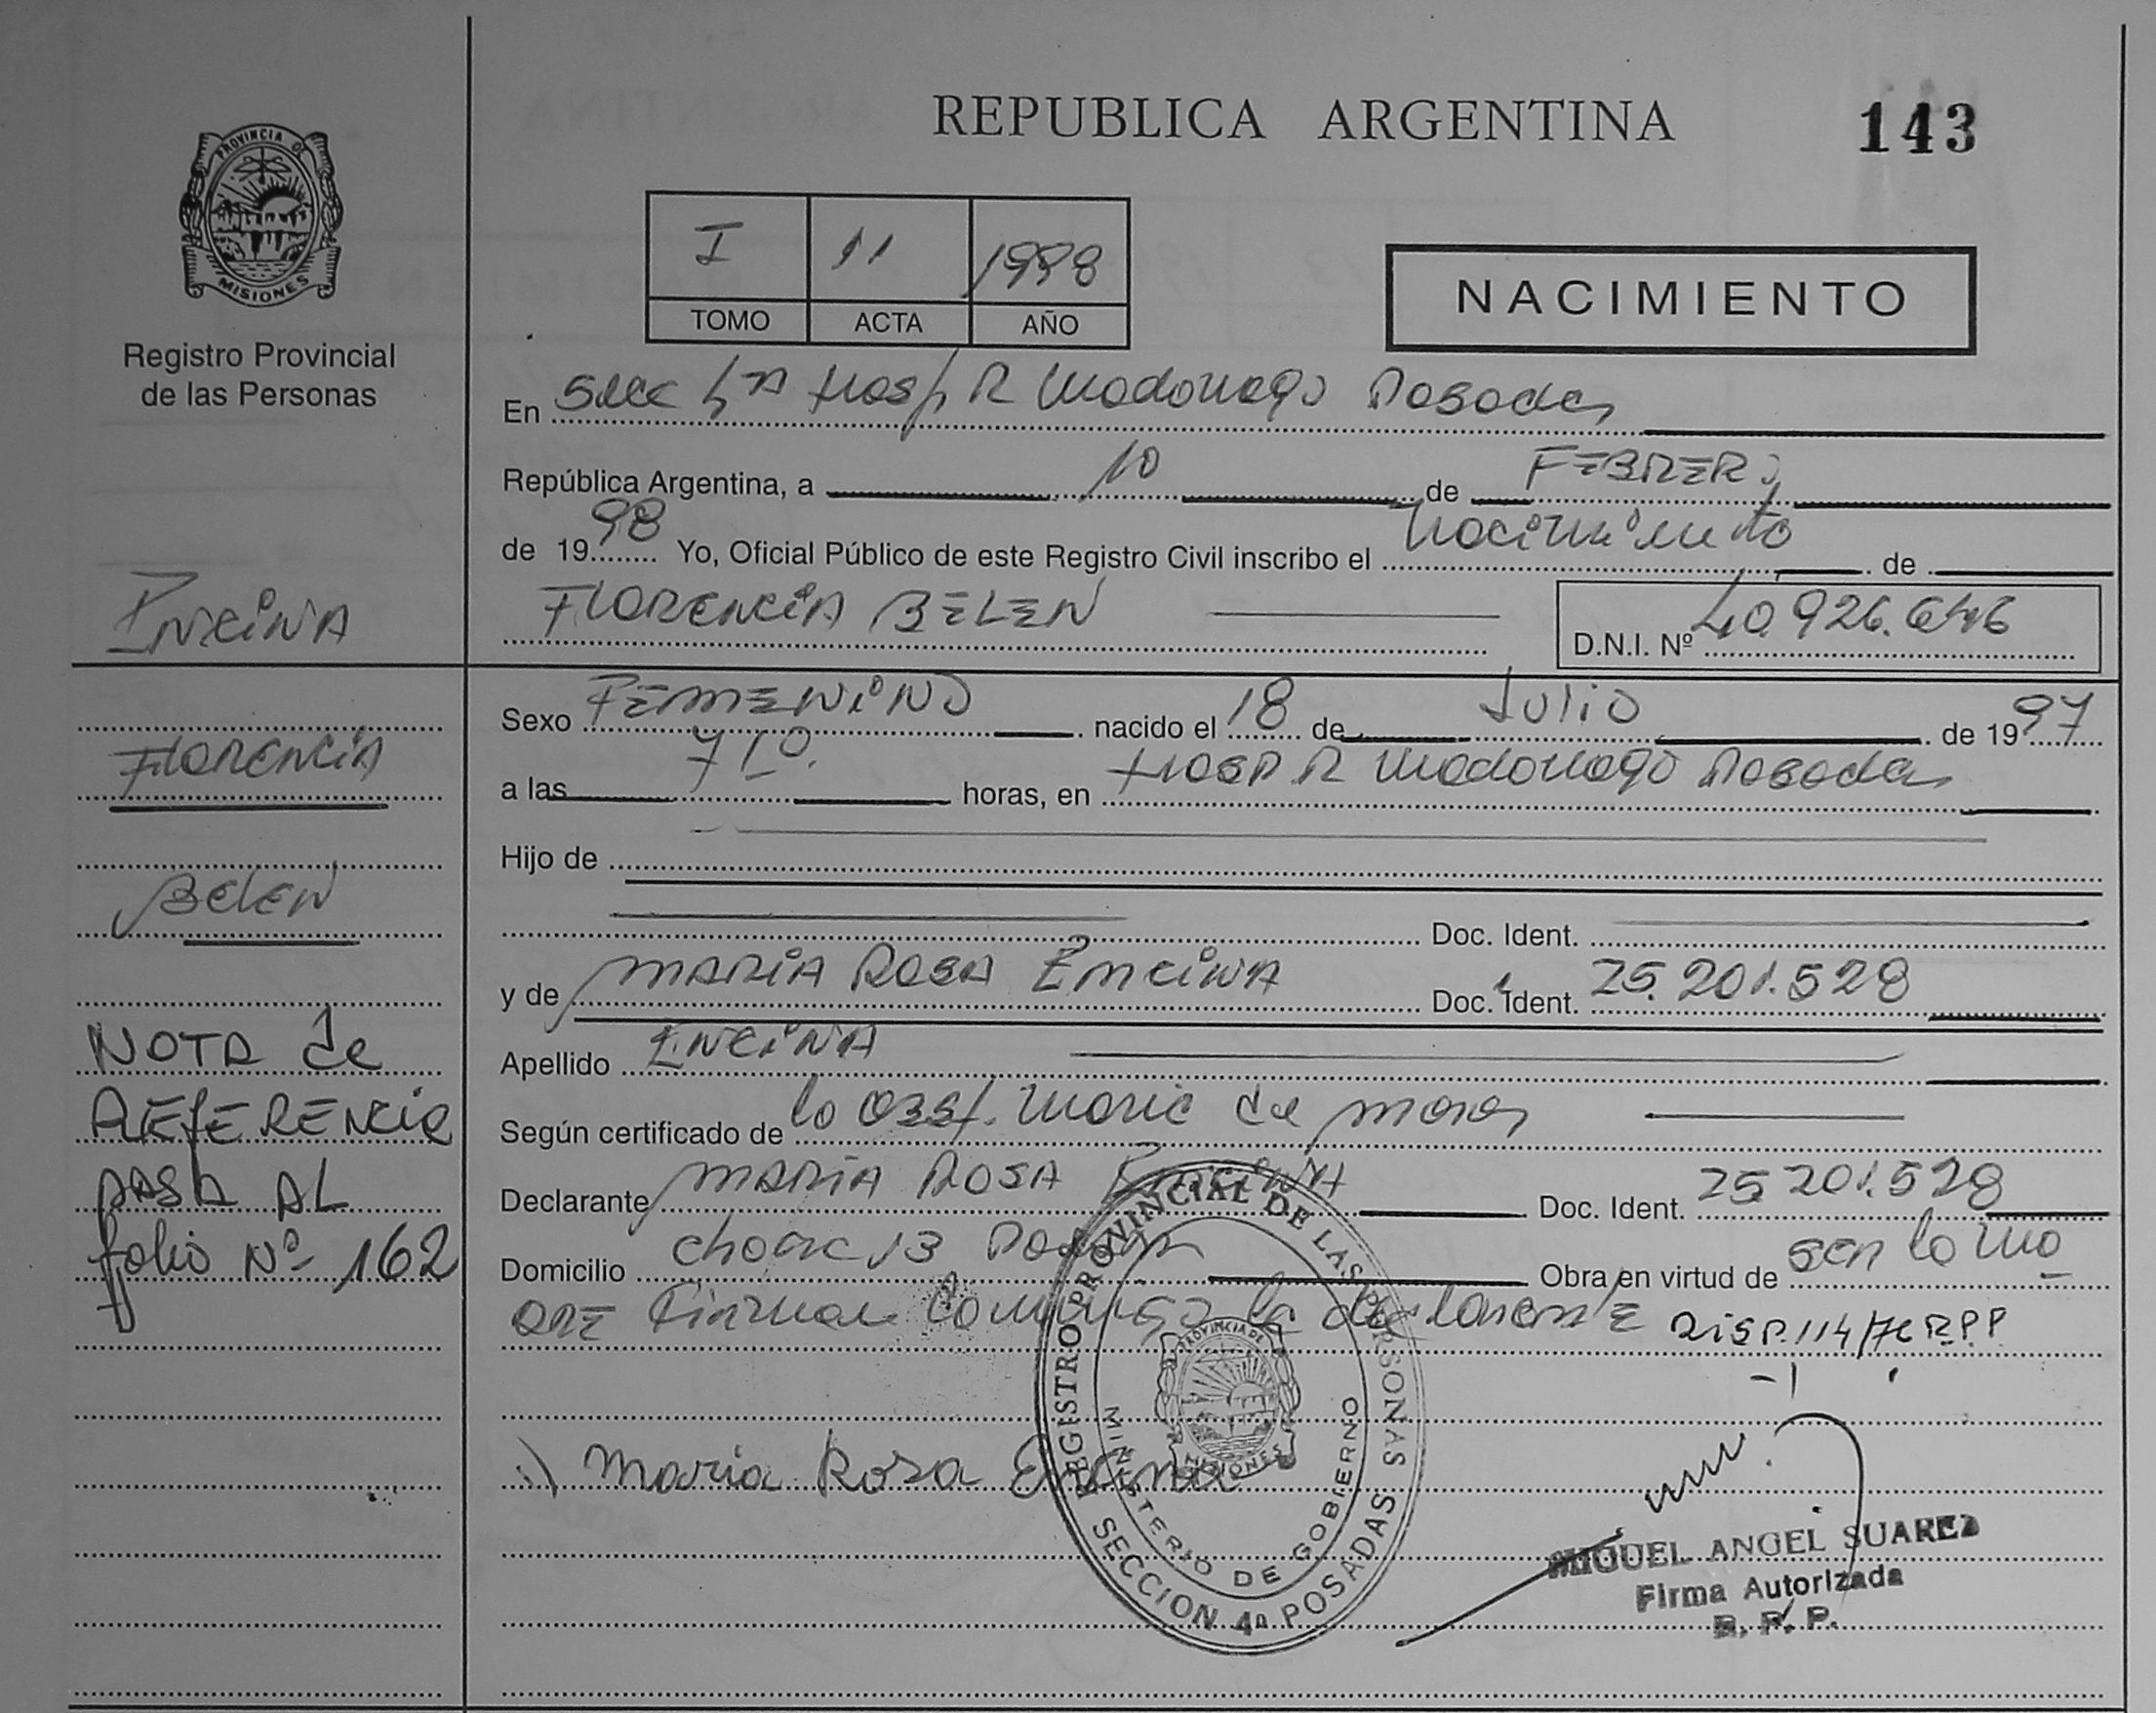 REPUBLICA ARGENTINA
143
PROVINCIA DE
MISIONES
Registro Provincial
de las Personas
I 11 1998
TOMO ACTA AÑO
NACIMIENTO
En Secc 4ta Hosp R Madariaga Posadas
República Argentina, a 10 de FEBRERO
de 1998 Yo, Oficial Público de este Registro Civil inscribo el nacimiento de
FLORENCIA BELEN
D.N.I. Nº 40.926.646
ENCINA
FLORENCIA
BELEN
NOTA de
REFERENCIA
PASA AL
folio Nº 162
Sexo FEMENINO nacido el 18 de Julio de 1997
a las 710. horas, en Hosp R Madariaga Posadas
Hijo de
Doc. Ident.
y de MARIA ROSA ENCINA Doc. Ident. 25.201.528
Apellido ENCINA
Según certificado de la Obst. Maria de
Declarante MARIA ROSA ENCINA Doc. Ident. 25.201.528
Domicilio chacra 13 Posadas Obra en virtud de ser la ma
DRE Firman conmigo la declarante DISP.114/76 R.P.P
Maria Rosa Encina
REGISTRO PROVINCIAL DE LAS PERSONAS
MINISTERIO DE GOBIERNO
PROVINCIA DE
MISIONES
SECCION 4ª POSADAS
MIGUEL ANGEL SUAREZ
Firma Autorizada
R. P. P.